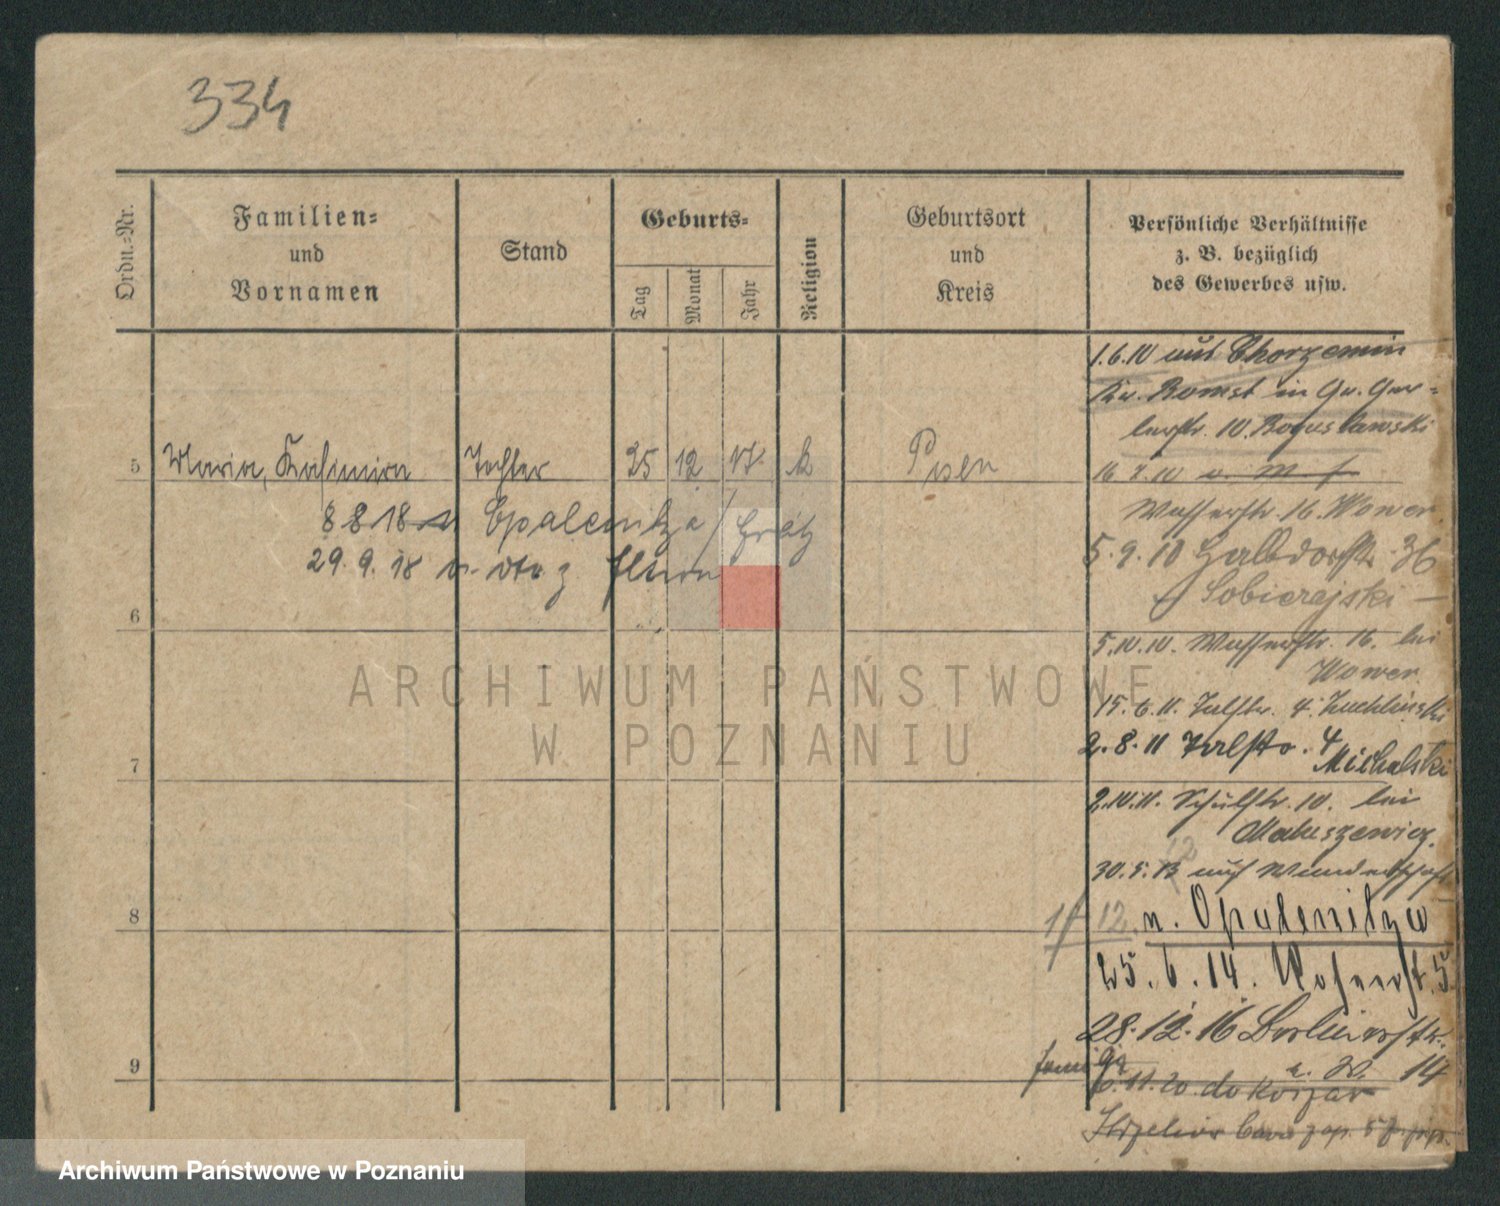 334
Ordn.-Nr.
Familien-
und
Vornamen
Stand
Geburts-
Tag
Monat
Jahr
Religion
Geburtsort
und
Kreis
Persönliche Verhältnisse
z. B. bezüglich
des Gewerbes usw.
5 Maria, Kasimira Tochter 25 12 17. k Posen
8 8 18 Opalenitza / Grätz
29. 9. 18 v. dto z Eltern
6
7
8
9
1.6.10 aus Chorzemin
Kr. Bomst in
10. Boguslawski
16 7.10 v. M
Wasserstr. 16. Wower.
5.9.10 Halbdorfstr. 36
Sobierajski
5.10.10. Wasserstr. 16. bei
Wower
15.6.11. 4.
2.8.11 4
Michalski
2.10.11. Schulstr. 10. bei
Matuszewicz.
30.5. auf Wanderschaft
12. n. Opalenitza
25.6.14. 5
28.12.16 Berlinerstr.
14
6.11.20. do koszar
ARCHIWUM PAŃSTWOWE
W POZNANIU
Archiwum Państwowe w Poznaniu